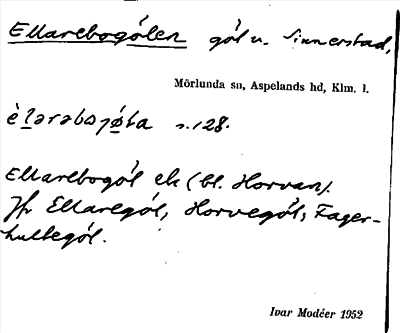 Ellarebogölen göl u. Sinnerstad,
Mörlunda sn, Aspelands hd, Klm. l.
s. 128.
Ellarebogöl ek (bl. Horvan).
Jfr Ellaregöl, Horvegöl, Fager-
hultegöl.
Ivar Modéer 1952